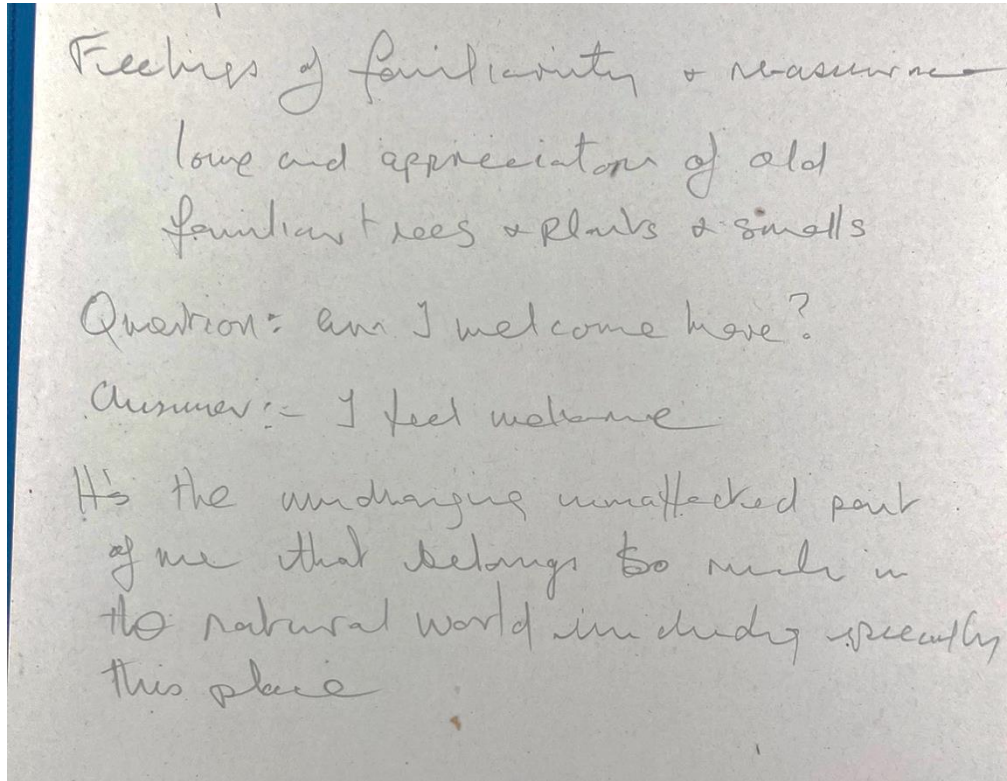 Feelings of familiarity &
love and appreciation of old
familiar trees & plants & smells
Question: am I welcome here?
Answer:- I feel welcome
It's the unchanging unaffected part
of me that belongs so much in
the natural world including specially
this place